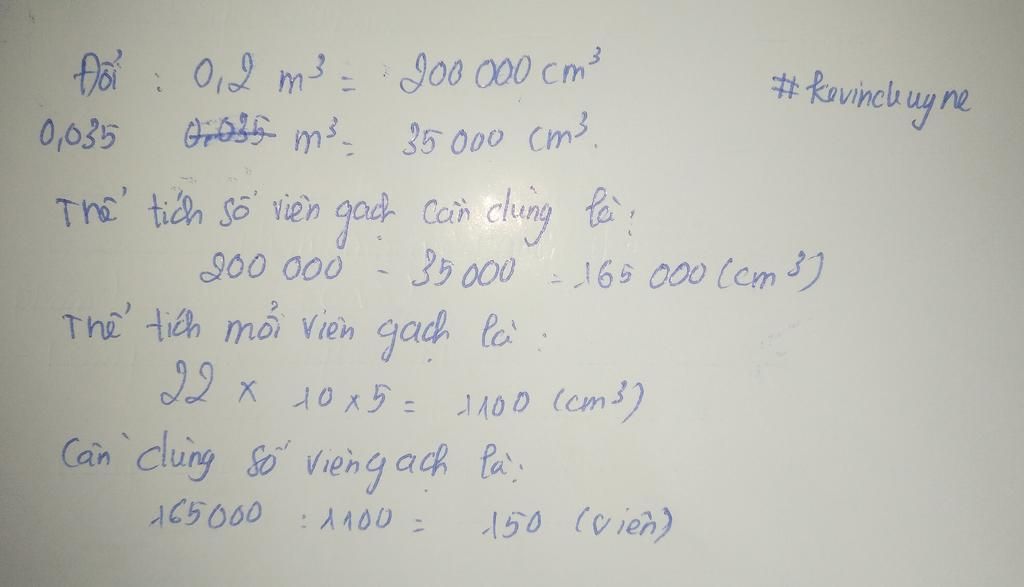 Đổi : 0,2 m³ = 200 000 cm³
#kevinchuyne
0,035 0,035 m³ = 35 000 cm³.
Thể tích số viên gạch cần dùng là:
200 000 - 35 000 = 165 000 (cm³)
Thể tích mỗi viên gạch là :
22 x 10 x 5 = 1100 (cm³)
Cần dùng số viên gạch là:
165000 : 1100 = 150 (viên)